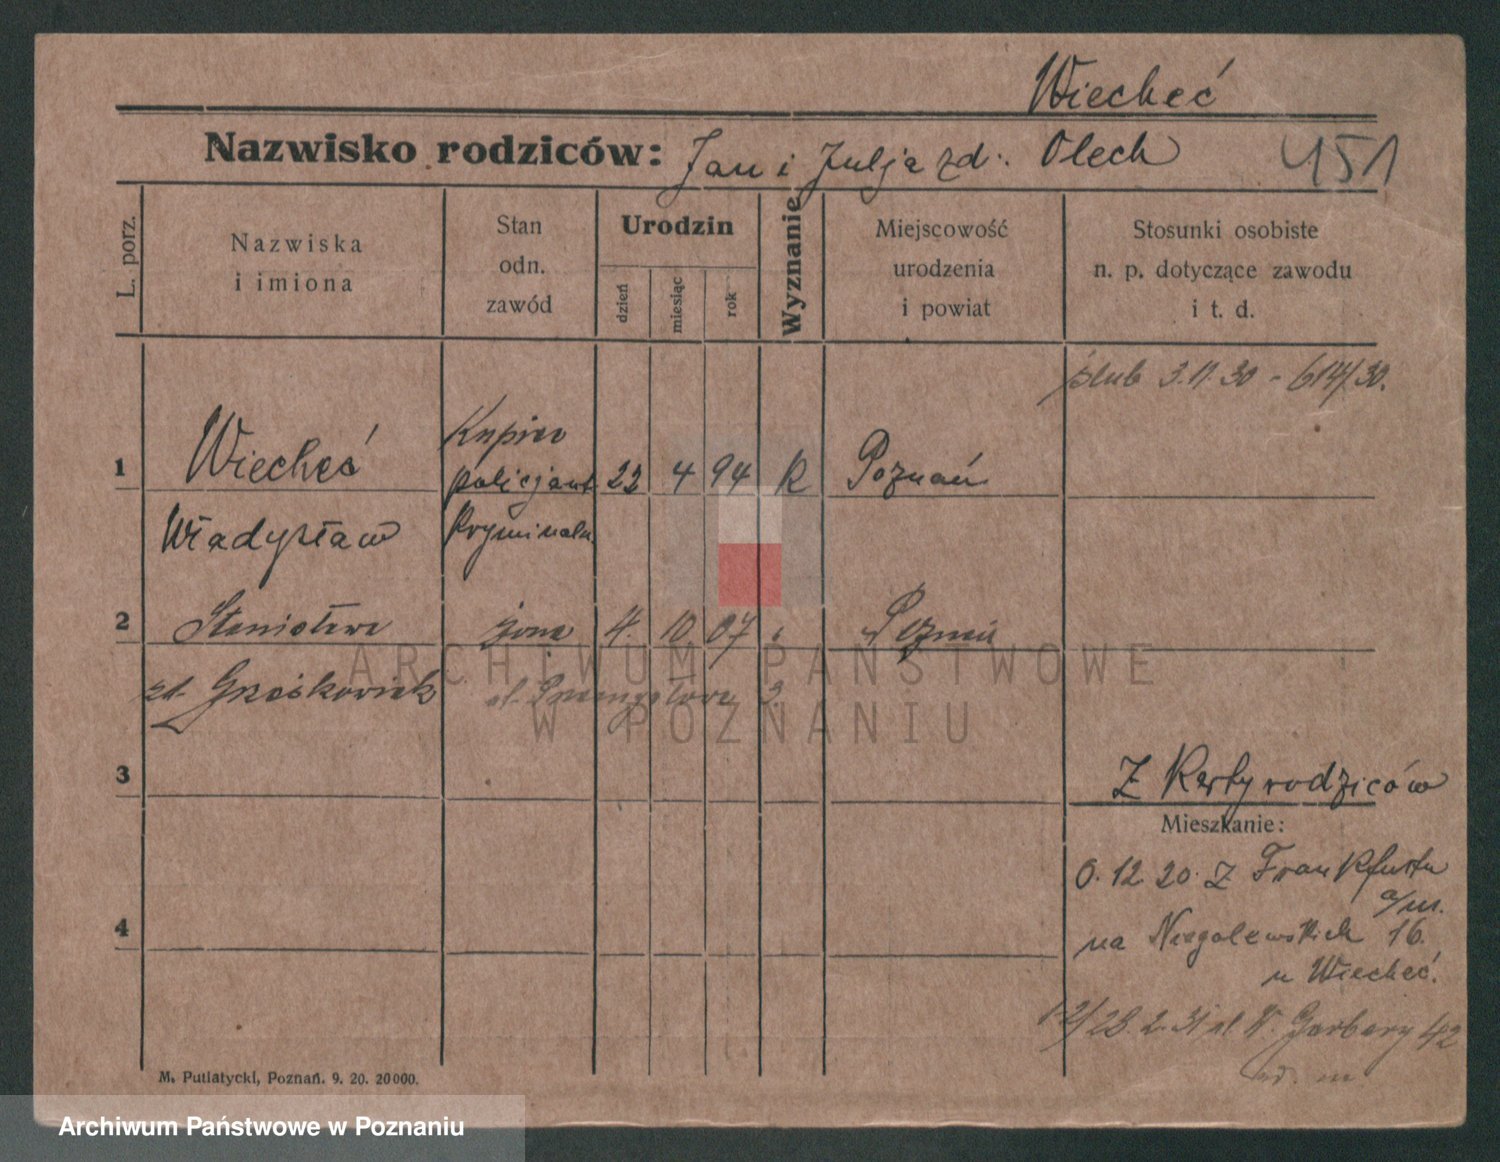 Wiecheć
Nazwisko rodziców: Jan i Julja zd. Olech
451
L. porz.
Nazwiska
i imiona
Stan
odn.
zawód
Urodzin
dzień
miesiąc
rok
Wyznanie
Miejscowość
urodzenia
i powiat
Stosunki osobiste
n. p. dotyczące zawodu
i t. d.
ślub 3.11.30 - 614/30.
1
Wiecheć
Kupiec
policjant
22 4 94 R Poznań
Władysław
Kryminaln.
2
Stanisława żona 4. 10. 07 Poznań
zd. Grześkowiak
3
Z Karty rodziców
Mieszkanie:
0.12.20. Z Frankfurtu
a/m.
4
na Niegolewskich 16.
u Wiecheć.
28.2.31 W. Garbary 42
M. Putiatycki, Poznań. 9. 20. 20000.
ARCHIWUM PAŃSTWOWE
W POZNANIU
Archiwum Państwowe w Poznaniu